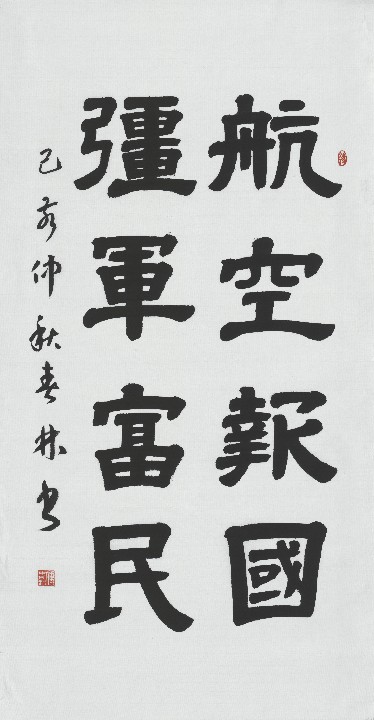 航空報國
彊軍富民
己亥仲秋春林书